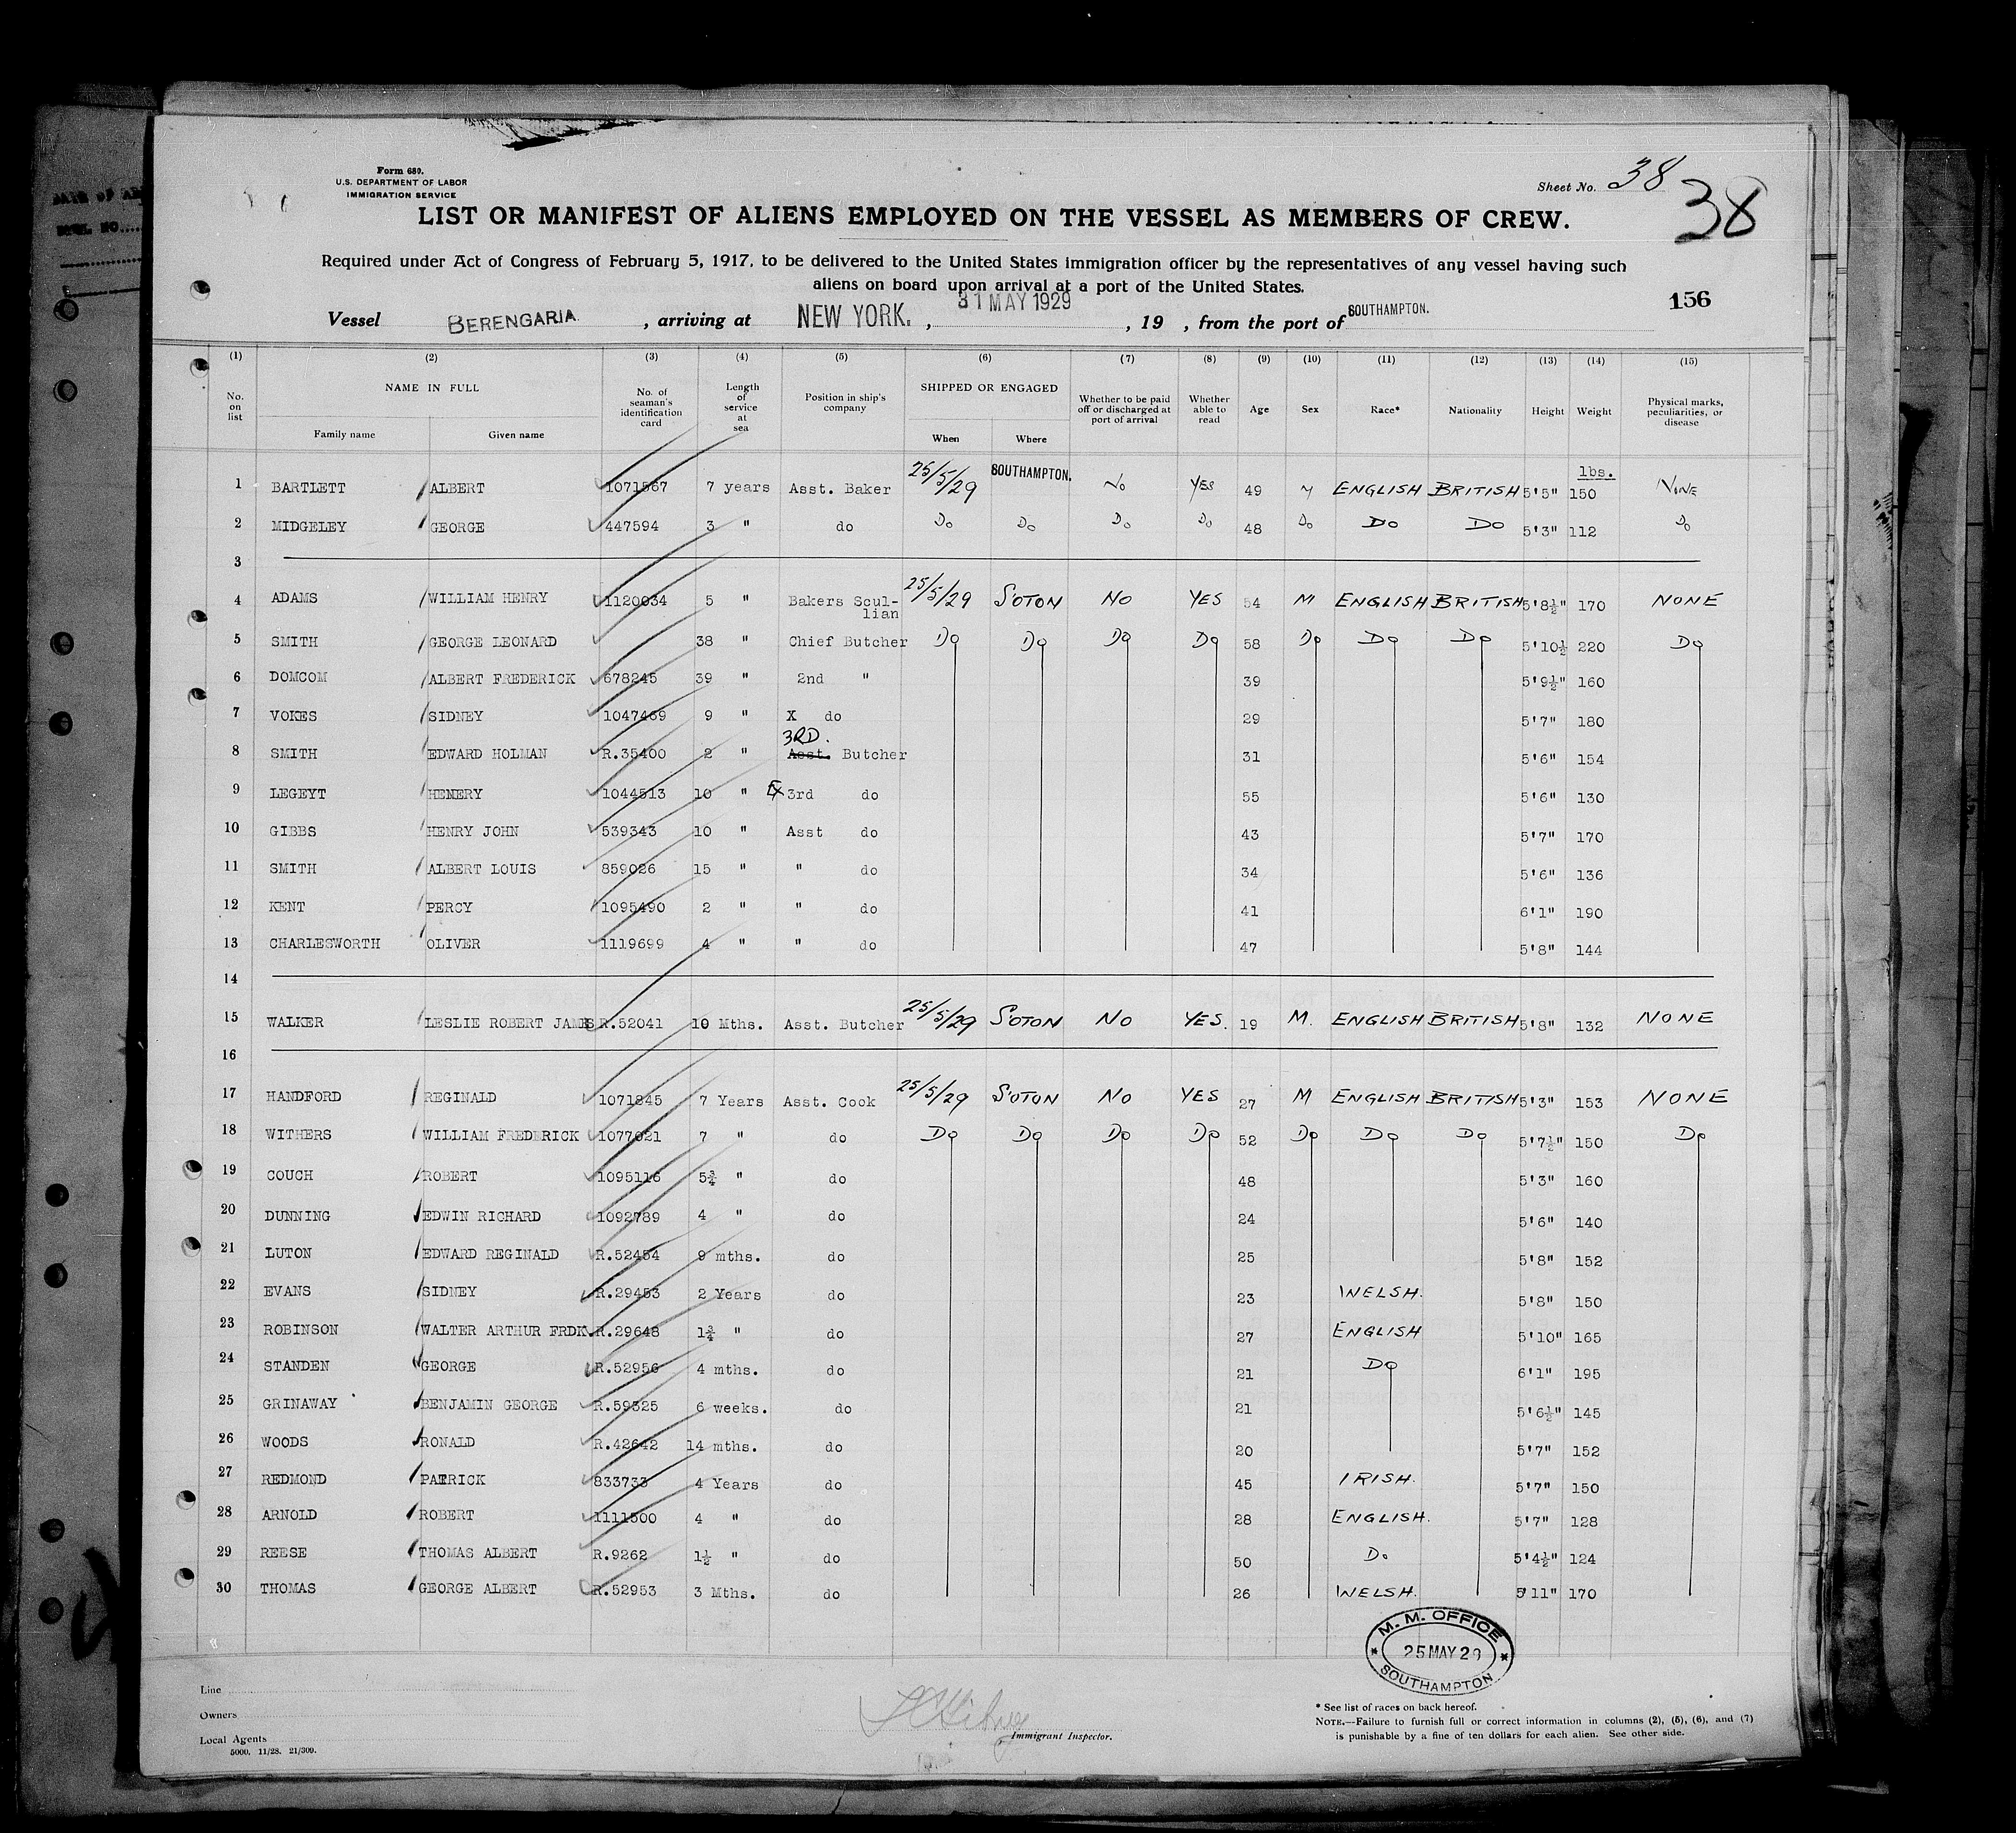 Form 680.
U.S. DEPARTMENT OF LABOR
IMMIGRATION SERVICE
Sheet No. 38
38
LIST OR MANIFEST OF ALIENS EMPLOYED ON THE VESSEL AS MEMBERS OF CREW.
Required under Act of Congress of February 5, 1917, to be delivered to the United States immigration officer by the representatives of any vessel having such
aliens on board upon arrival at a port of the United States.
156
Vessel BERENGARIA , arriving at NEW YORK. , 31 MAY 1929 , 19 , from the port of SOUTHAMPTON.
(1) (2) (3) (4) (5) (6) (7) (8) (9) (10) (11) (12) (13) (14) (15)
No. on list NAME IN FULL Family name Given name No. of seaman's identification card Length of service at sea Position in ship's company SHIPPED OR ENGAGED When Where Whether to be paid off or discharged at port of arrival Whether able to read Age Sex Race* Nationality Height Weight Physical marks, peculiarities, or disease
lbs.
1 BARTLETT ALBERT 1071567 7 years Asst. Baker 25/5/29 SOUTHAMPTON. No YES 49 M ENGLISH BRITISH 5'5" 150 NONE
2 MIDGELEY GEORGE 447594 3 " do Do Do Do Do 48 Do Do Do 5'3" 112 Do
3
4 ADAMS WILLIAM HENRY 1120034 5 " Bakers Scul-lian 25/5/29 S'OTON NO YES 54 M ENGLISH BRITISH 5'8½" 170 NONE
5 SMITH GEORGE LEONARD 38 " Chief Butcher Do Do Do Do 58 Do Do Do 5'10½ 220 Do
6 DOMCOM ALBERT FREDERICK 678245 39 " 2nd " 39 5'9½" 160
7 VOKES SIDNEY 1047469 9 " X do 29 5'7" 180
8 SMITH EDWARD HOLMAN R.35400 2 " 3RD. Asst. Butcher 31 5'6" 154
9 LEGEYT HENERY 1044513 10 " EX 3rd do 55 5'6" 130
10 GIBBS HENRY JOHN 539343 10 " Asst do 43 5'7" 170
11 SMITH ALBERT LOUIS 859026 15 " " do 34 5'6" 136
12 KENT PERCY 1095490 2 " " do 41 6'1" 190
13 CHARLESWORTH OLIVER 1119699 4 " " do 47 5'8" 144
14
15 WALKER LESLIE ROBERT JAMES R.52041 10 Mths. Asst. Butcher 25/5/29 S'OTON NO YES. 19 M. ENGLISH BRITISH 5'8" 132 NONE
16
17 HANDFORD REGINALD 1071845 7 Years Asst. Cook 25/5/29 S'OTON NO YES 27 M ENGLISH BRITISH 5'3" 153 NONE
18 WITHERS WILLIAM FREDERICK 1077021 7 " do Do Do Do Do 52 Do Do Do 5'7½" 150 Do
19 COUCH ROBERT 1095116 5¾ " do 48 5'3" 160
20 DUNNING EDWIN RICHARD 1092789 4 " do 24 5'6" 140
21 LUTON EDWARD REGINALD R.52454 9 mths. do 25 5'8" 152
22 EVANS SIDNEY R.29453 2 Years do 23 WELSH. 5'8" 150
23 ROBINSON WALTER ARTHUR FRDK. R.29648 1¾ " do 27 ENGLISH 5'10" 165
24 STANDEN GEORGE R.52956 4 mths. do 21 Do 6'1" 195
25 GRINAWAY BENJAMIN GEORGE R.59325 6 weeks. do 21 5'6½" 145
26 WOODS RONALD R.42642 14 mths. do 20 5'7" 152
27 REDMOND PATRICK 833733 4 Years do 45 IRISH. 5'7" 150
28 ARNOLD ROBERT 1111500 4 " do 28 ENGLISH. 5'7" 128
29 REESE THOMAS ALBERT R.9262 1½ " do 50 Do 5'4½" 124
30 THOMAS GEORGE ALBERT R.52953 3 Mths. do 26 WELSH. 5'11" 170
M. M. OFFICE
25 MAY 29
SOUTHAMPTON
Line
Owners
Local Agents
5000. 11/28. 21/309.
Immigrant Inspector.
* See list of races on back hereof.
NOTE.—Failure to furnish full or correct information in columns (2), (5), (6), and (7)
is punishable by a fine of ten dollars for each alien. See other side.